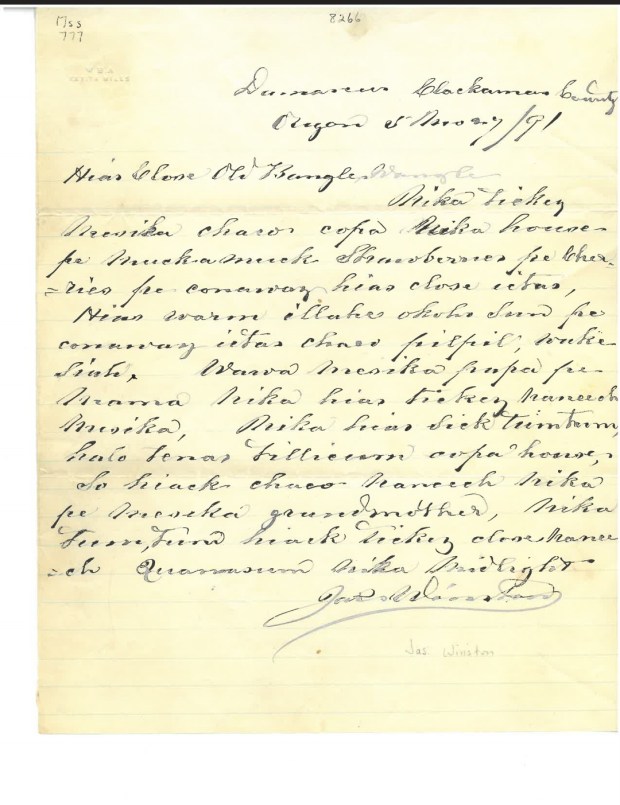 Mss
777
8266
Damascus Clackamas County
Oregon 5 Mo 27/91
Hias Close Old Kangle Wangle
Nika tickey
mesika chaco copa Nika house
pe muckamuck Strawberries pe Cher-
=ries pe conaway hias close ictas,
Hias warm illahe okoke Sun pe
conaway ictas chaco pilpil, wake
Siah. Wawa mesika papa pe
mama Nika hias tickey nanech
mesika, Nika hias Sick tumtum,
halo tenas tillicum copa house,
So hiack chaco nanech Nika
pe mesika grandmother, Nika
tum,tum hiack tickey close nane
=ch Quanasum Nika Midlight
Jas Winston
Jas Winston